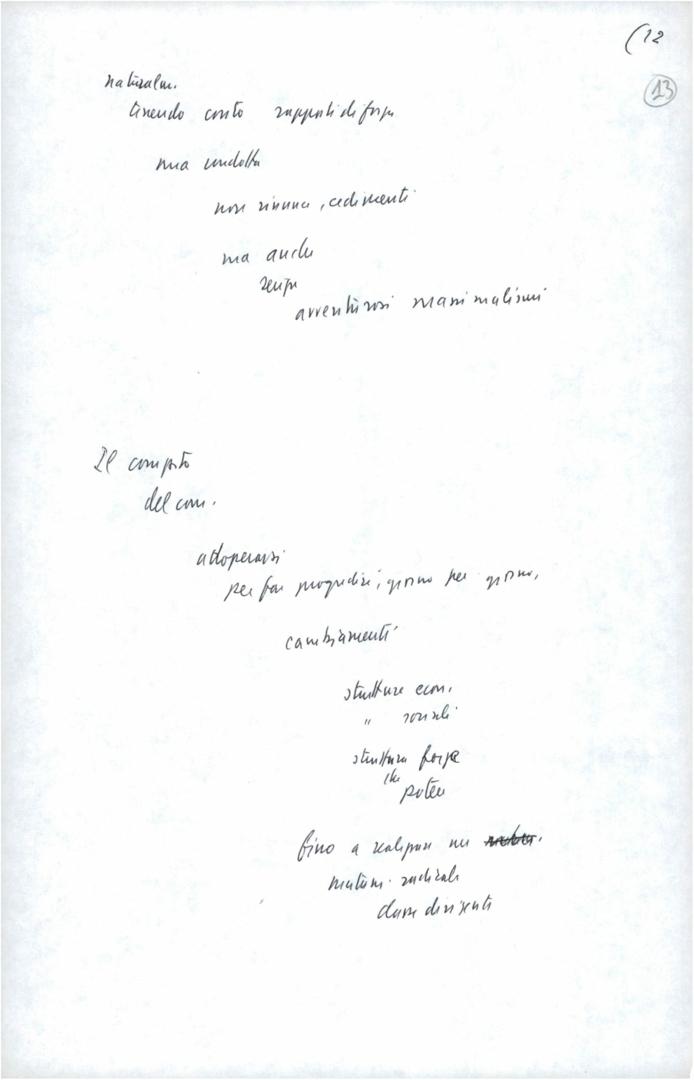 (12
13
naturalm.
tenendo conto rapporti di forza
ma condotta
non rinunce, cedimenti
ma anche
senza
avventurosi massimalismi
Il compito
del com.
adoperarsi
per far progredire, giorno per giorno,
cambiamenti
strutture econ.
" sociali
struttura forze
che
potere
fino a realizzare un
mutam. radicale
classi dirigenti